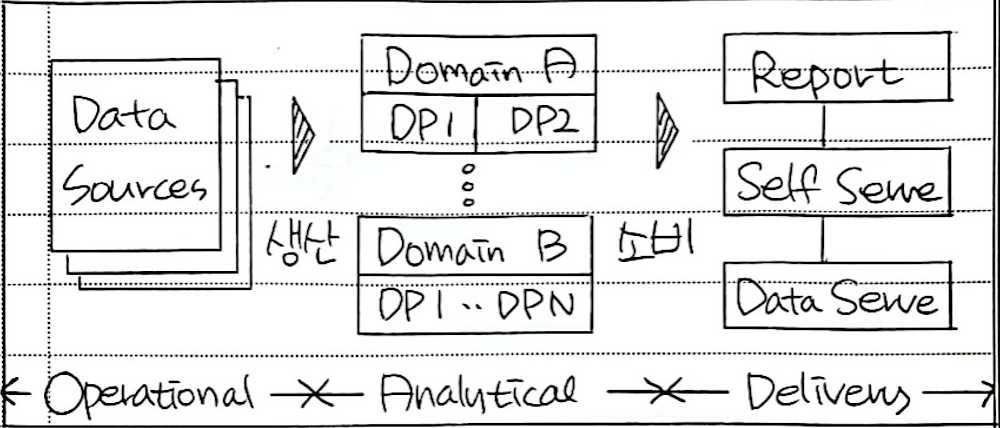 Data
Sources
생산
Domain A
DP1 DP2
Domain B
DP1 ·· DPN
소비
Report
Self Serve
Data Serve
Operational Analytical Delivery